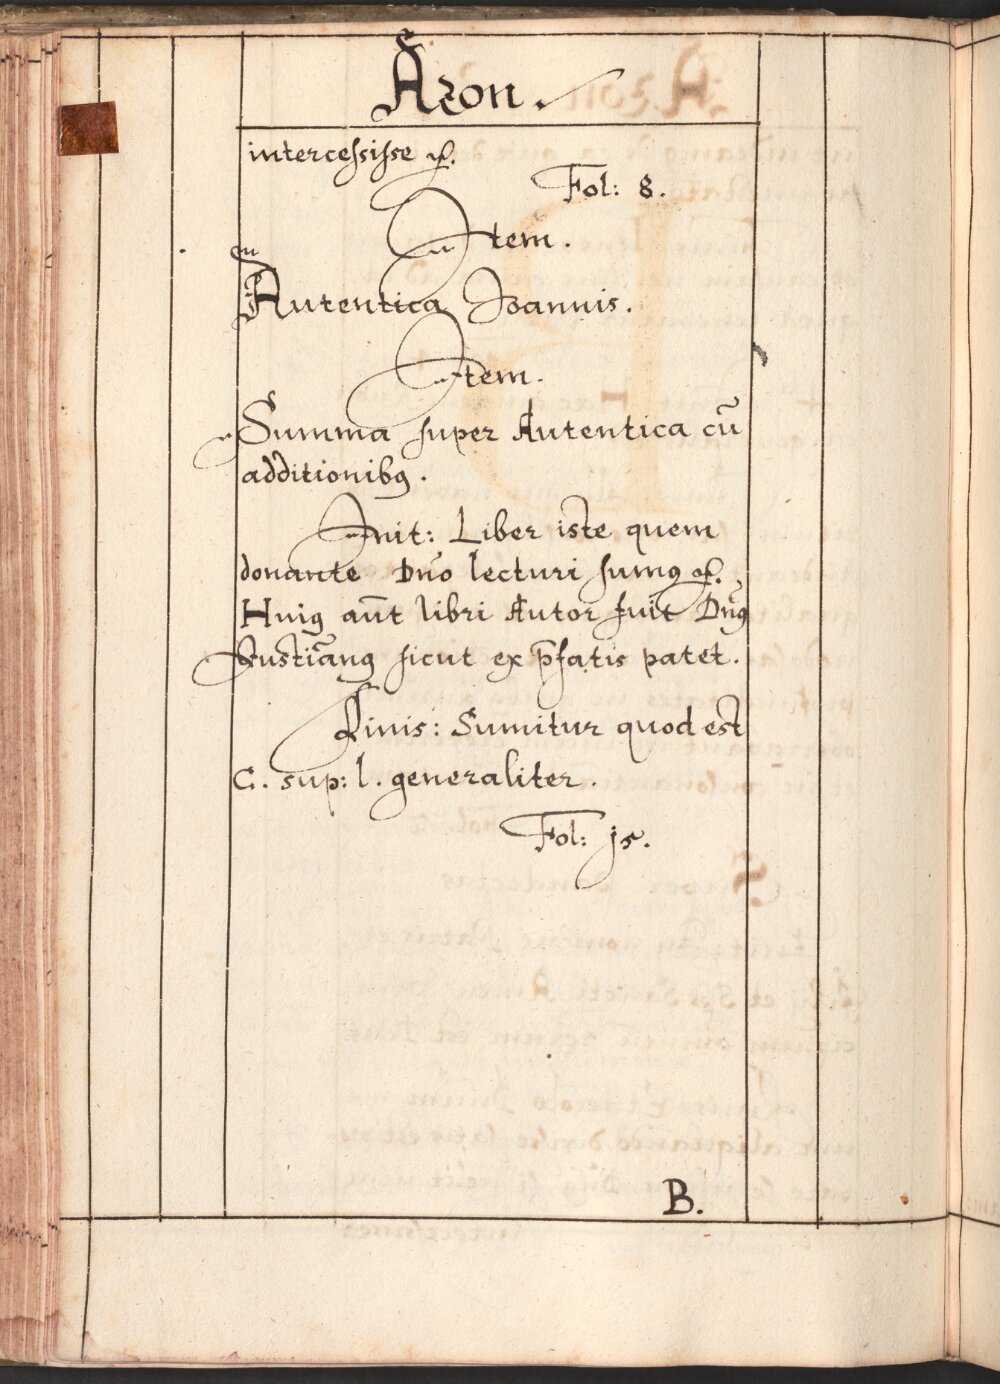 Azon.
intercessisse &c.
Fol: 8.
Item.
Autentica Joannis.
Item.
Summa super Autentica cū
additionibꝯ.
Init: Liber iste quem
donante Dn̄o lecturi sumꝯ &c.
Huiꝯ aūt libri Autor fuit Dn̄ꝯ
Justiānꝯ sicut ex p̄fatis patet.
Finis: Sumitur quod est
C. sup: l. generaliter.
Fol: j5.
B.